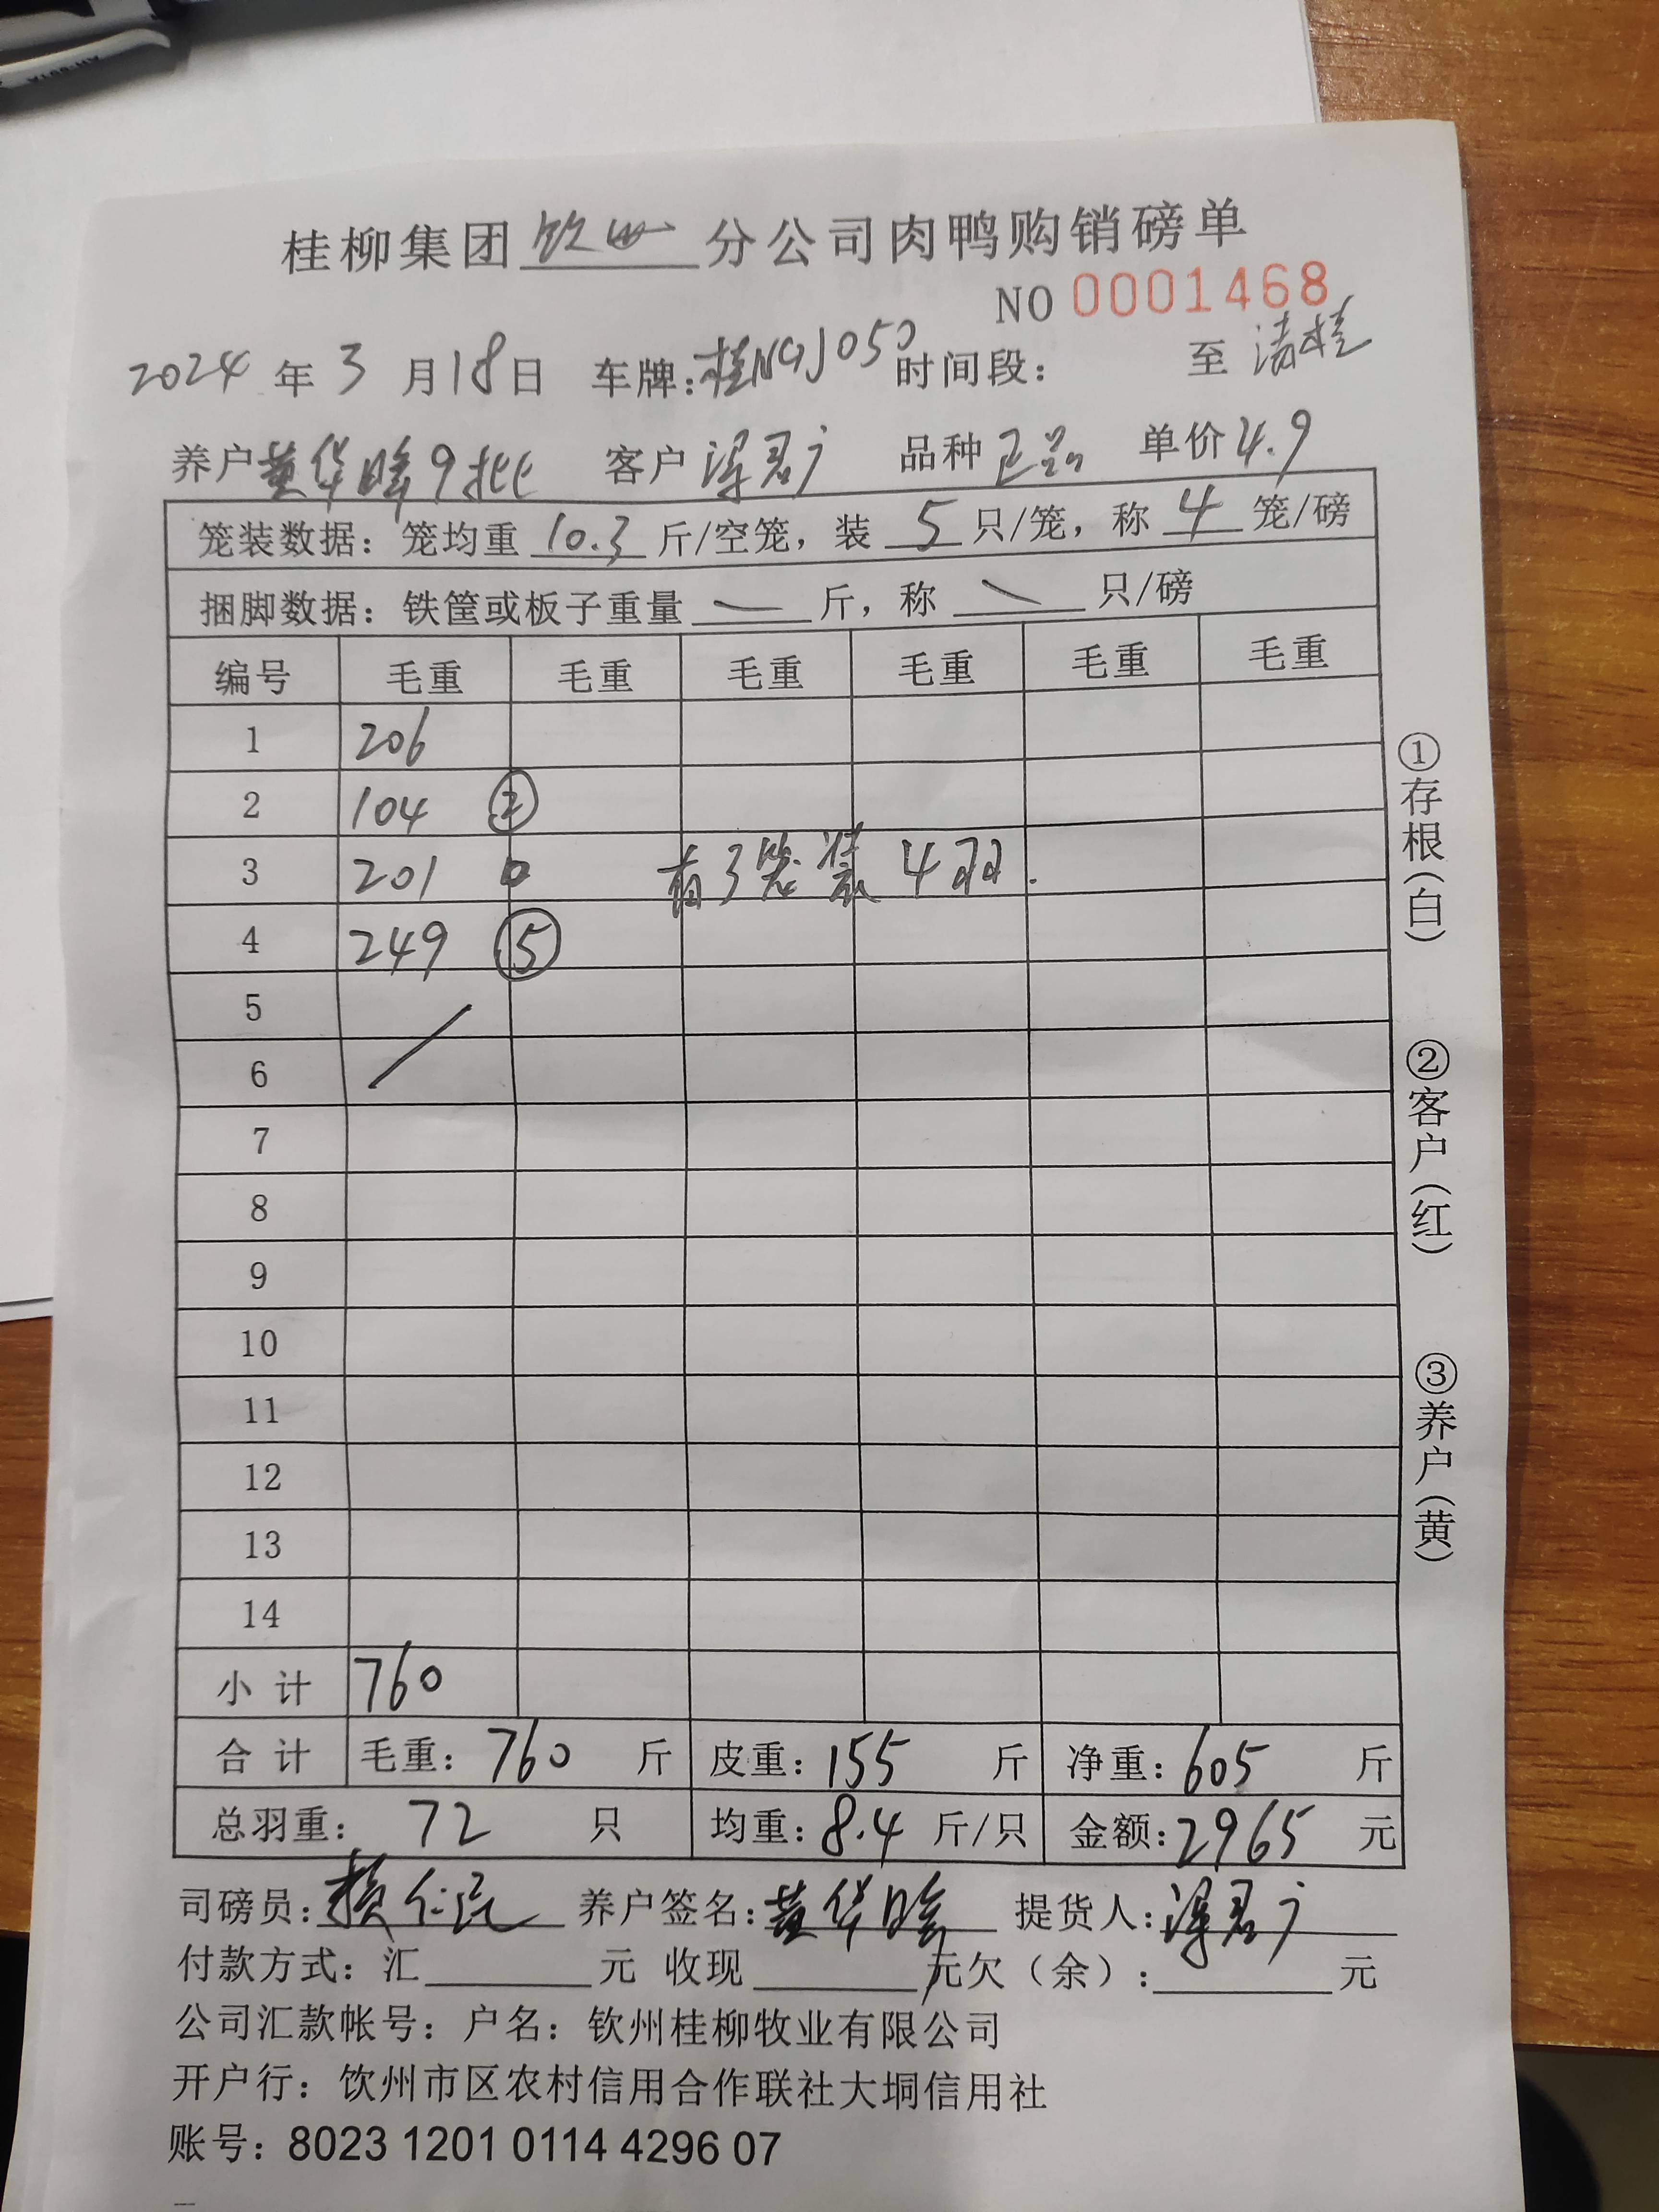 桂柳集团 钦州 分公司肉鸭购销磅单
NO 0001468
2024 年 3 月 18 日 车牌: 时间段: 至 清桂
养户 黄华 9批 客户 品种 正品 单价 4.9
笼装数据: 笼均重 10.3 斤/空笼, 装 5 只/笼, 称 4 笼/磅
捆脚数据: 铁筐或板子重量 — 斤, 称 — 只/磅
编号 毛重 毛重 毛重 毛重 毛重 毛重
1 206
2 104 ②
3 201 有3笼装4羽.
4 249 ⑤
5
6
7
8
9
10
11
12
13
14
小计 760
合计 毛重: 760 斤 皮重: 155 斤 净重: 605 斤
总羽重: 72 只 均重: 8.4 斤/只 金额: 2965 元
司磅员: 养户签名: 黄华 提货人:
付款方式: 汇 元 收现 元欠(余): 元
公司汇款帐号: 户名: 钦州桂柳牧业有限公司
开户行: 钦州市区农村信用合作联社大垌信用社
账号: 8023 1201 0114 4296 07
①存根(白)
②客户(红)
③养户(黄)